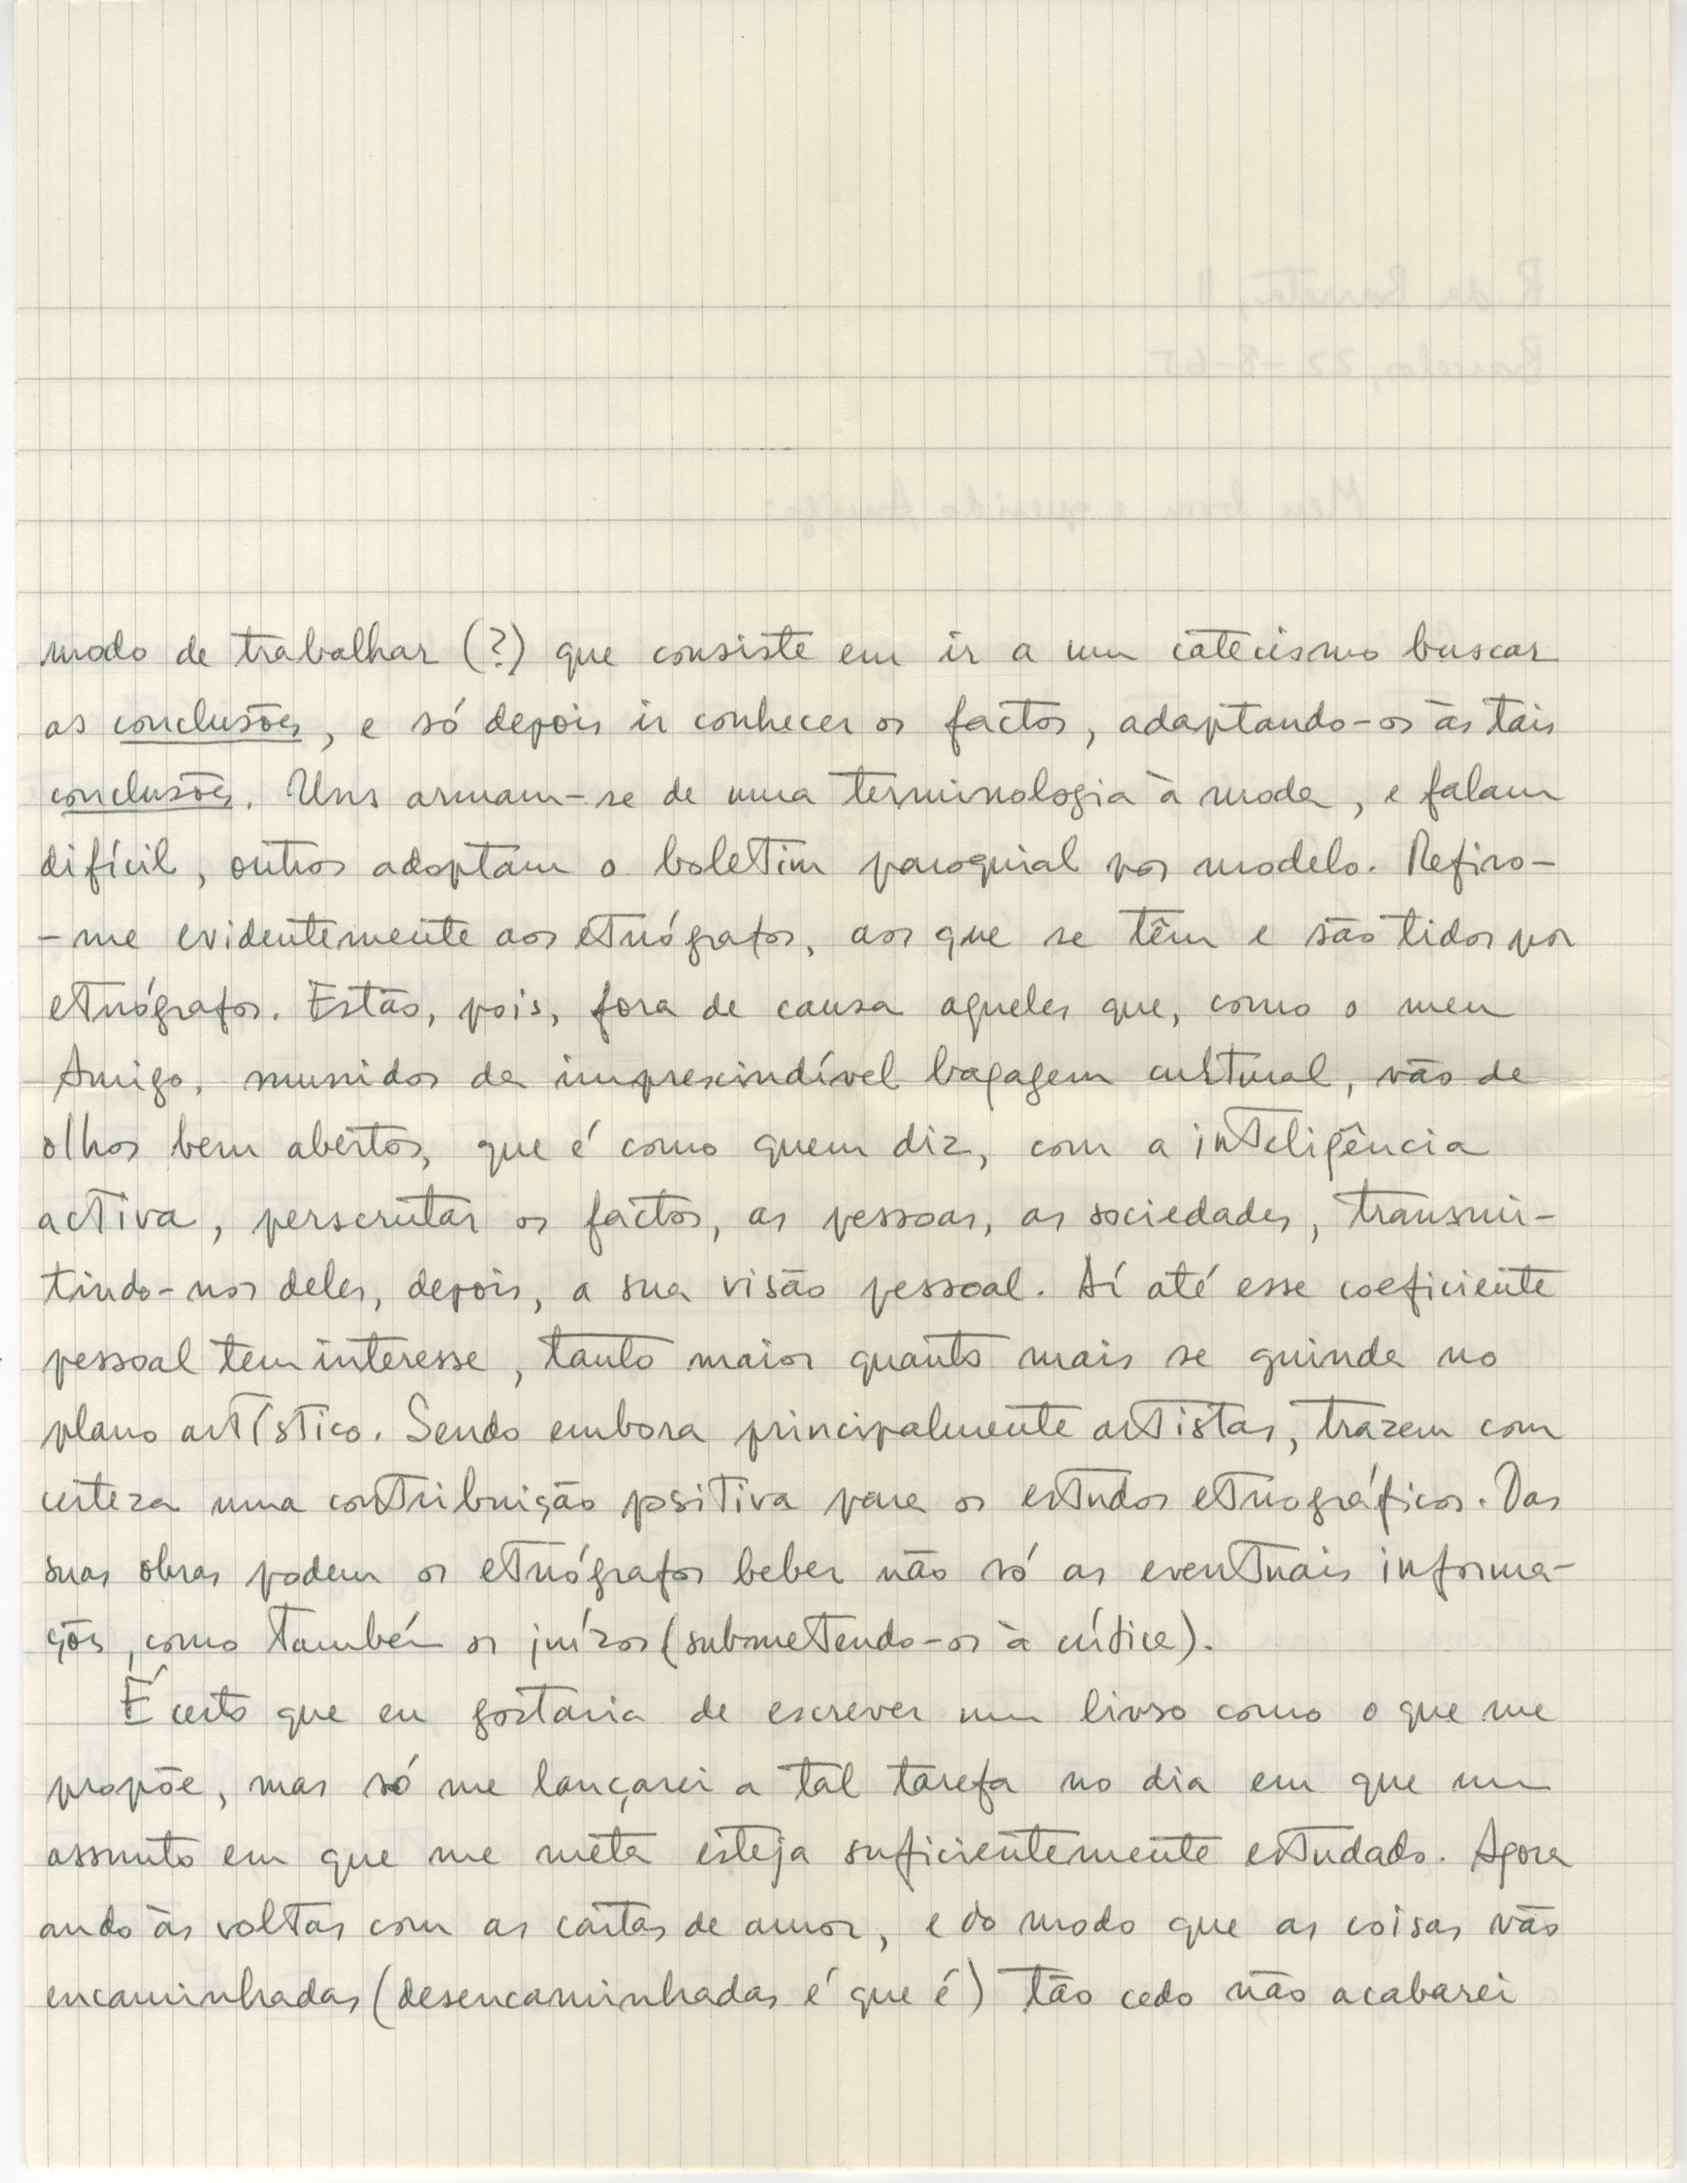 modo de trabalhar (?) que consiste em ir a um catecismo buscar
as conclusões, e só depois ir conhecer os factos, adaptando-os às tais
conclusões. Uns armam-se de uma terminologia à moda, e falam
difícil, outros adoptam o boletim paroquial por modelo. Refiro-
-me evidentemente aos etnógrafos, aos que se têm e são tidos por
etnógrafos. Estão, pois, fora de causa aqueles que, como o meu
Amigo, munidos da imprescindível bagagem cultural, vão de
olhos bem abertos, que é como quem diz, com a inteligência
activa, perscrutar os factos, as pessoas, as sociedades, transmi-
tindo-nos deles, depois, a sua visão pessoal. Aí até esse coeficiente
pessoal tem interesse, tanto maior quanto mais se guinda no
plano artístico. Sendo embora principalmente artistas, trazem com
certeza uma contribuição positiva para os estudos etnográficos. Das
suas obras podem os etnógrafos beber não só as eventuais informa-
ções, como também os juízos (submetendo-os à crítica).
É certo que eu gostaria de escrever um livro como o que me
propõe, mas só me lançarei a tal tarefa no dia em que um
assunto em que me meta esteja suficientemente estudado. Agora
ando às voltas com as cartas de amor, e do modo que as coisas vão
encaminhadas (desencaminhadas é que é) tão cedo não acabarei